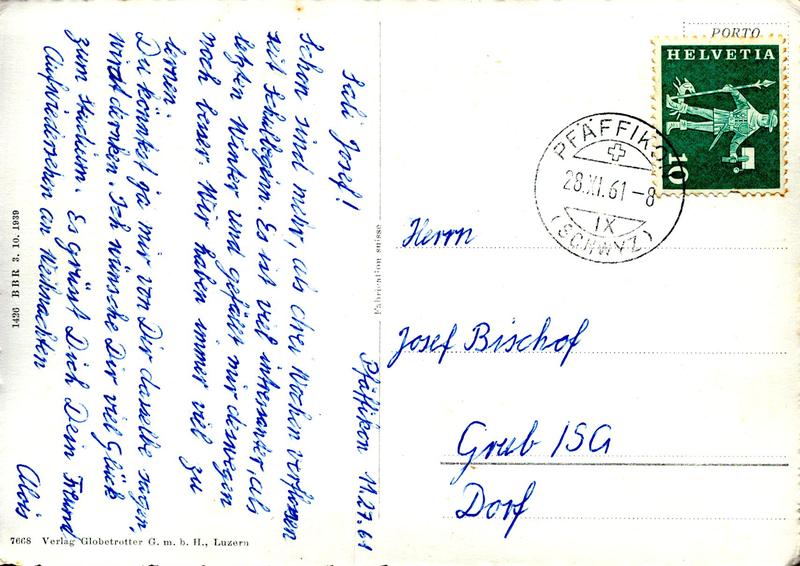 Pfäffikon 11.27.61
Sali Josef!
Schon sind mehr, als drei Wochen verflossen
seit Schulbeginn. Es ist viel intressanter, als
letzten Winter und gefällt mir deswegen
noch besser. Wir haben immer viel zu
lernen.
Du könntest ja mir von Dir dasselbe sagen,
wirst denken. Ich wünsche Dir viel Glück
zum Studium. Es grüsst Dich Dein Freund
Aufwiedersehen an Weihnachten
Alois
1426 BBR 3. 10. 1939
7668 Verlag Globetrotter G. m. b. H., Luzern
Fabrication suisse
PORTO
HELVETIA
10
PFÄFFIKON
28.XI.61-8
IX
(SCHWYZ)
Herrn
Josef Bischof
Grub /SG
Dorf